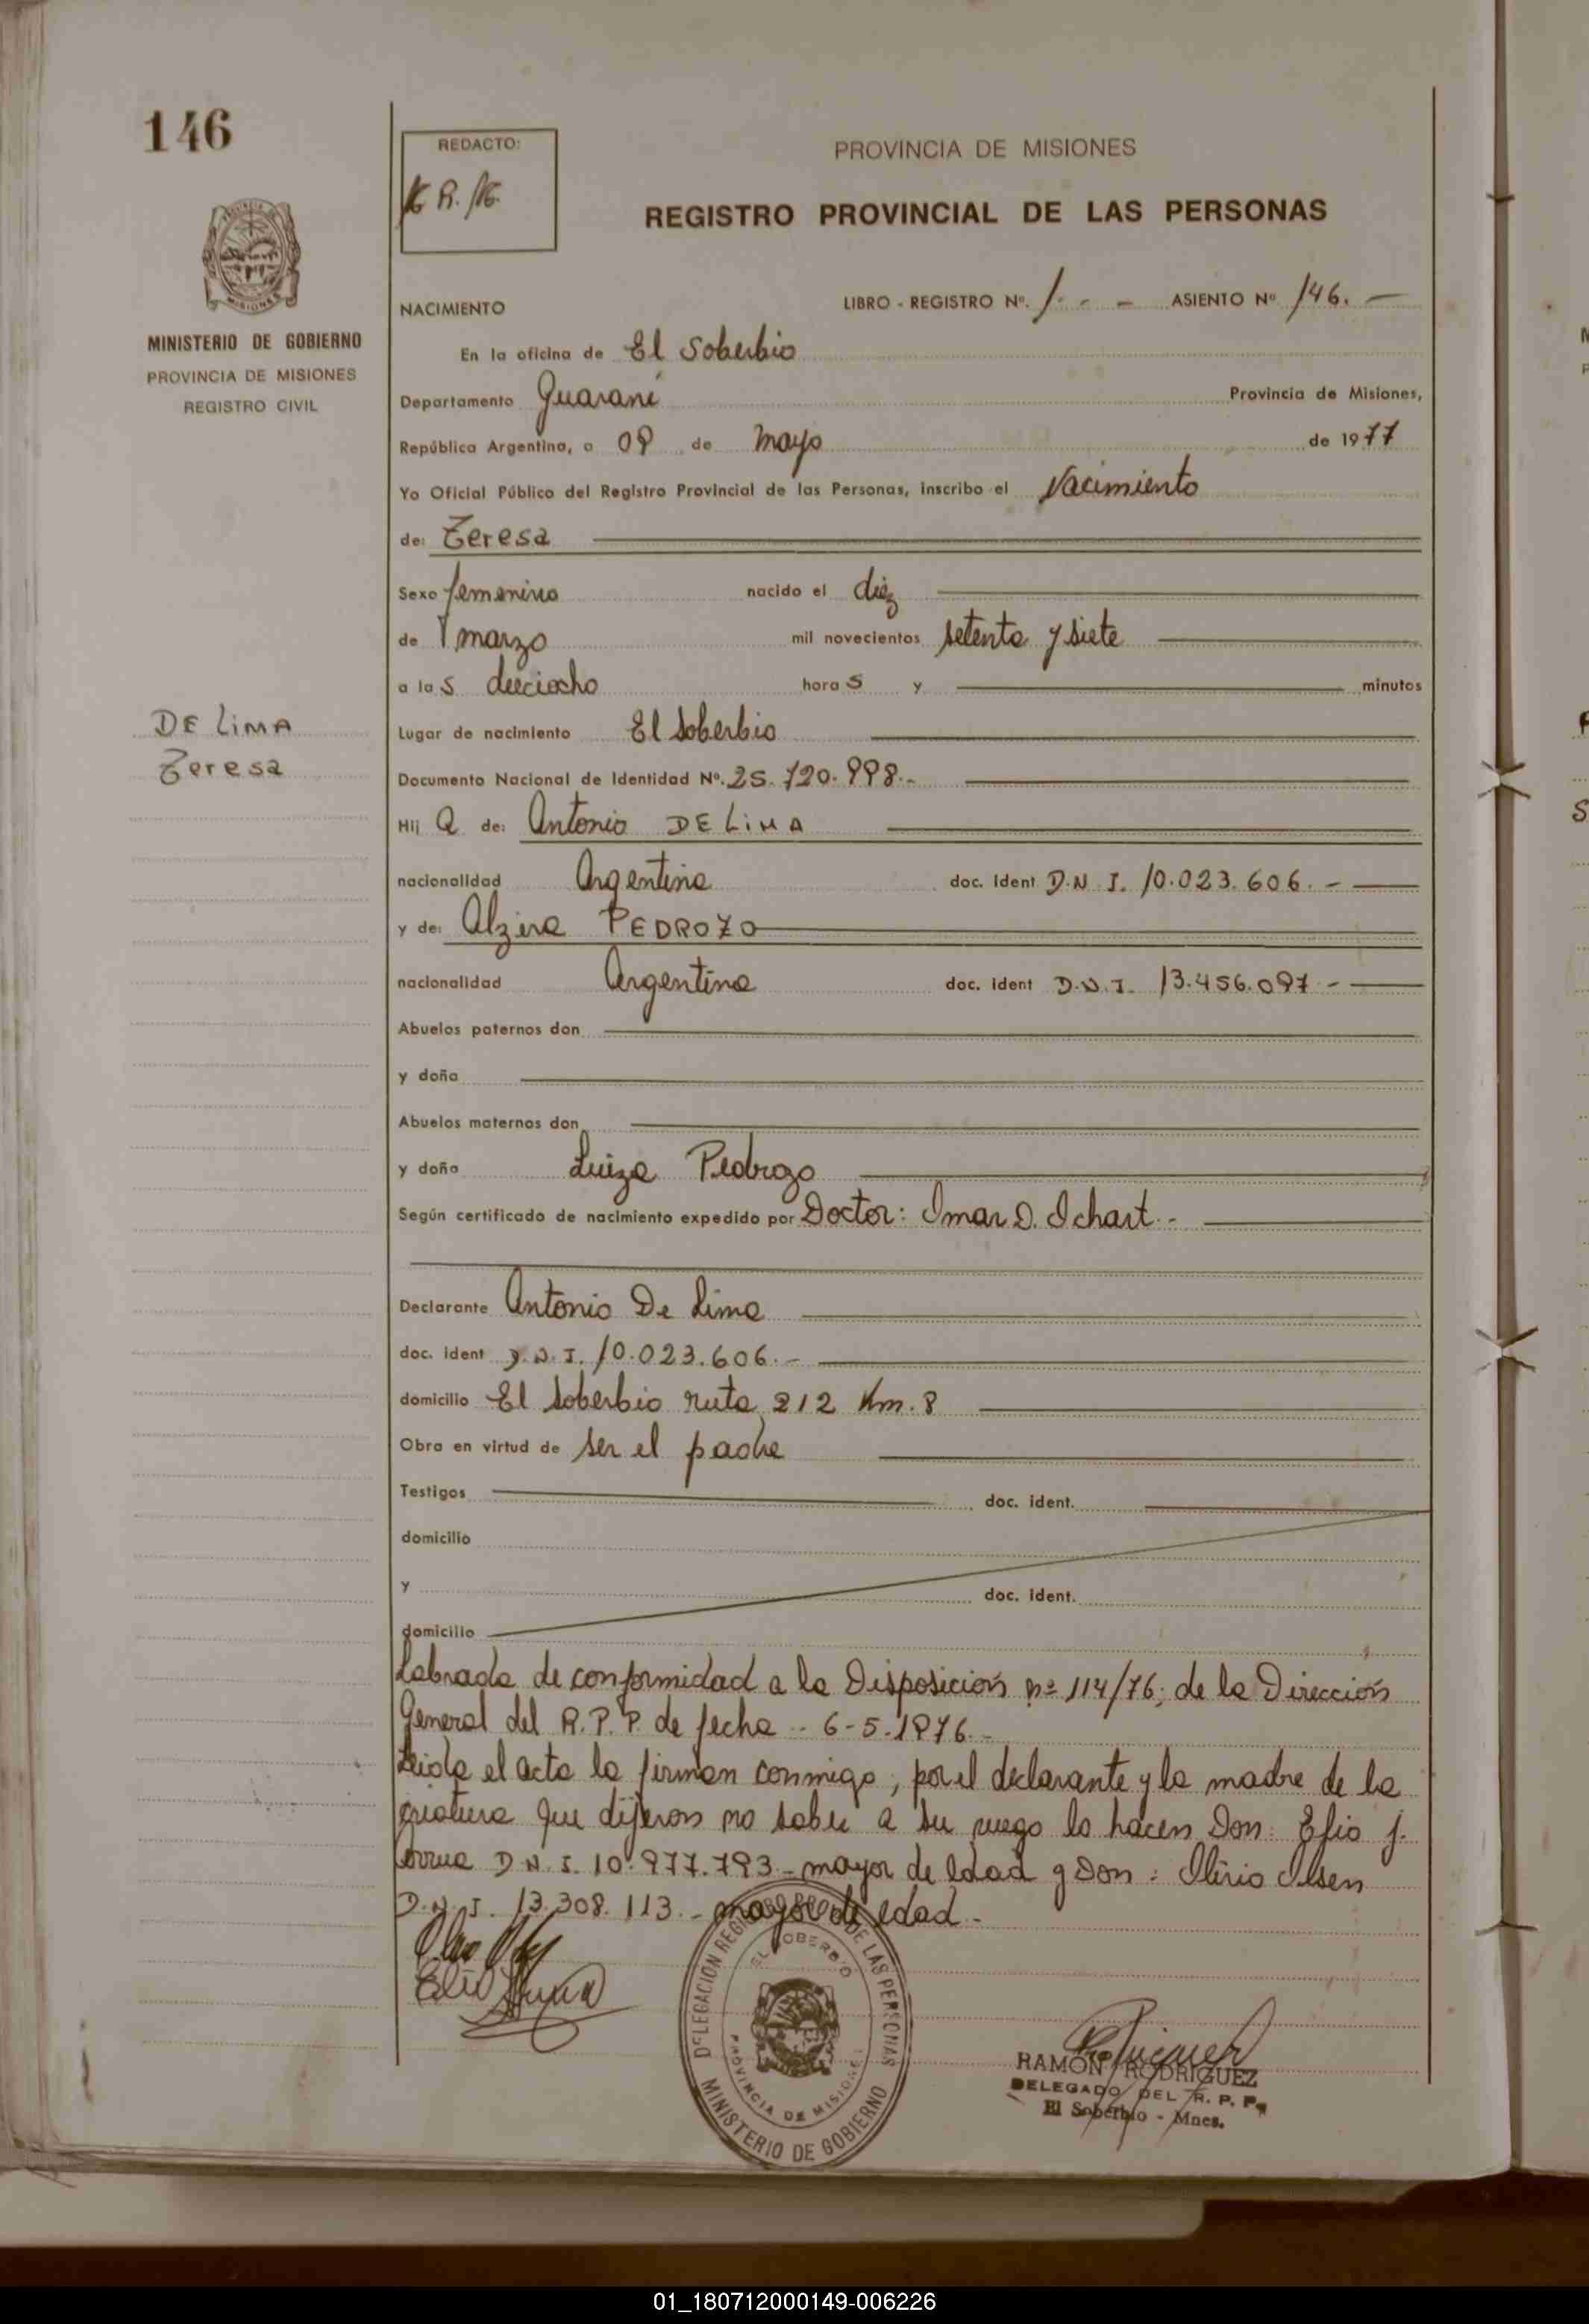 146
REDACTO:
K R. K.
PROVINCIA DE MISIONES
REGISTRO PROVINCIAL DE LAS PERSONAS
MISIONES
MINISTERIO DE GOBIERNO
PROVINCIA DE MISIONES
REGISTRO CIVIL
NACIMIENTO LIBRO - REGISTRO Nº. 1. - - ASIENTO Nº 146. —
En la oficina de El Soberbio
Departamento Guaraní Provincia de Misiones,
República Argentina, a 09 de mayo de 1977
Yo Oficial Público del Registro Provincial de las Personas, inscribo el Nacimiento
de: Teresa
Sexo femenino nacido el diéz
de marzo mil novecientos setenta y siete
a las dieciocho horas y minutos
DE LIMA
Teresa
Lugar de nacimiento El Soberbio
Documento Nacional de Identidad Nº. 25.720.998.-
Hij a de: Antonio DE LIMA
nacionalidad Argentina doc. ident D.N.I. 10.023.606. -
y de: Alzira PEDROZO
nacionalidad Argentina doc. ident D.N.I. 13.456.097 -
Abuelos paternos don
y doña
Abuelos maternos don
y doña Luiza Pedrozo
Según certificado de nacimiento expedido por Doctor: Omar D. Ichart.-
Declarante Antonio De Lima
doc. ident D.N.I. 10.023.606.-
domicilio El Soberbio ruta 212 Km. 8
Obra en virtud de ser el padre
Testigos doc. ident.
domicilio
y doc. ident.
domicilio
Labrada de conformidad a la Disposición nº 114/76; de la Dirección
General del R.P.P. de fecha - 6-5-1976.-
Leida el acta la firman conmigo, por el declarante y la madre de la
criatura que dijeron no saber a su ruego lo hacen Don: Elio J.
D.N.I. 10.977.793 - mayor de edad y Don: Olirio Olsen
D.N.I. 13.308.113. - mayor de edad -
DELEGACION REGISTRO PROV. DE LAS PERSONAS
EL SOBERBIO
PROVINCIA DE MISIONES
MINISTERIO DE GOBIERNO
RAMON RODRIGUEZ
DELEGADO DEL R. P. P.
El Soberbio - Mnes.
01_180712000149-006226